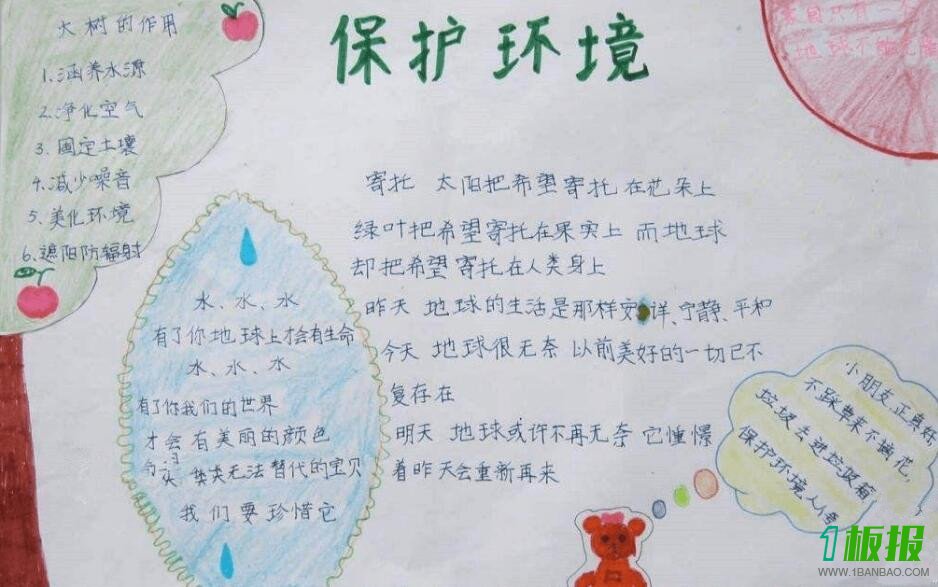 保护环境
大树的作用
1.涵养水源
2.净化空气
3.固定土壤
4.减少噪音
5.美化环境
6.遮阳防辐射
家园只有一个
地球不能
寄托 太阳把希望寄托在花朵上
绿叶把希望寄托在果实上 而地球
却把希望寄托在人类身上
昨天 地球的生活是那样安详、宁静、平和
今天 地球很无奈 以前美好的一切已不
复存在
明天 地球或许不再无奈 它憧憬
着昨天会重新再来
水、水、水
有了你地球上才会有生命
水、水、水
有了你我们的世界
才会有美丽的颜色
类无法替代的宝贝
我们要珍惜它
小朋友,正真好
不踩草来不摘花,
垃圾丢进垃圾箱
保护环境人人
1板报
WWW.1BANBAO.COM